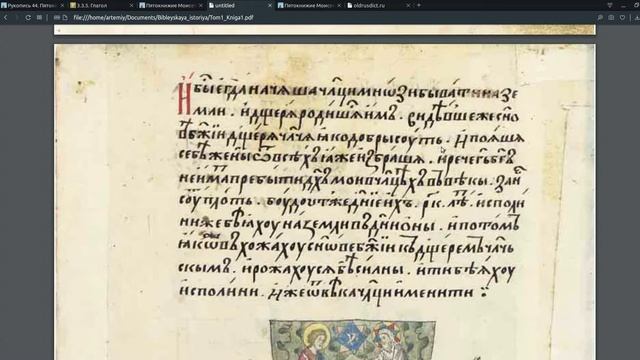 Рукопись 44. Пятокни
3.3.5. Глагол
Пятокнижие Моисе
untitled
Пятокнижие Моисе
oldrusdict.ru
file:///home/artemiy/Documents/Bibleyskaya_istoriya/Tom1_Kniga1.pdf
И бы егда начаша чл҃ци мнѡзи бывати на зе
мли . и дщеря родишѧ имъ . видѣвше же сн҃о
ве бж҃ии дщеря чл҃чѧ ꙗко добры соуть . И поꙗшѧ
себѣ жены ѿ всѣхъ ꙗже избрашѧ . и рече гь бг҃ъ
не има пребыти дх҃ъ мои в чл҃цѣхъ въ вѣкы . зане
соу плоть . боудоуть же дн҃ие ихъ . рк҃ . лѣ . исполи
ни же бѣахоу на земли въ дни ѡны . и потомъ
ꙗкѡ въхожахоу сн҃ѡве бж҃ии къ дщеремъ чл҃чь
скымъ . и рожахоусѧ бѣ силны . и ти бѣѧхоу
исполини . Иже ѿ вѣка чл҃ци именити